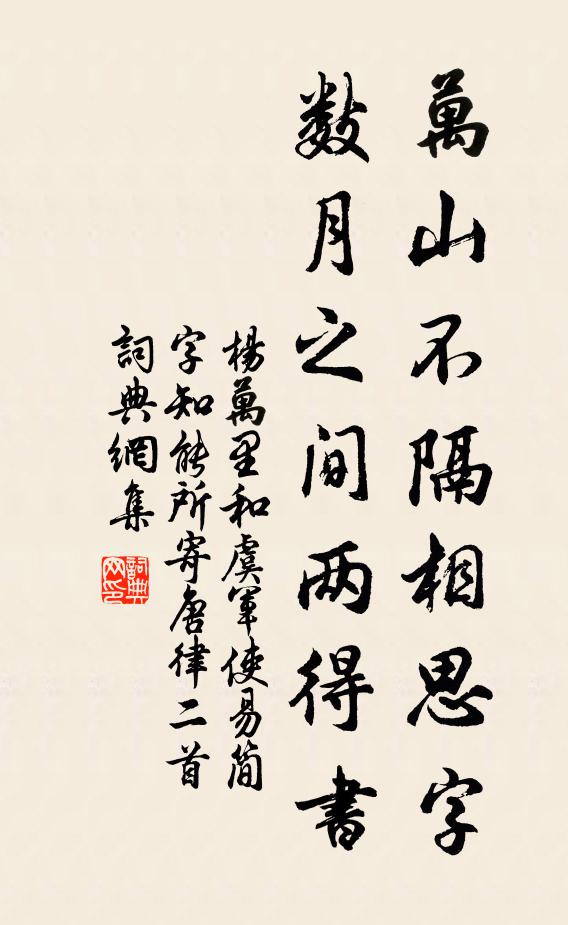 萬山不隔相思字
数月之间两得書
楊萬里和虞軍使易簡
字知能所寄唐律二首
詞典網集
詞典网印